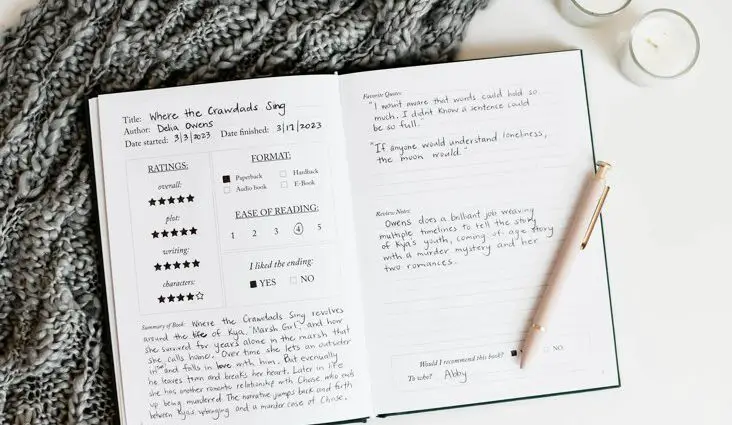 Title: Where the Crawdads Sing
Author: Delia Owens
Date started: 3/3/2023 Date finished: 3/17/2023
RATINGS:
overall:
★★★★★
plot:
★★★★★
writing:
★★★★★
characters:
★★★★☆
FORMAT:
■ Paperback □ Hardback
□ Audio book □ E-Book
EASE OF READING:
1 2 3 4 5
I liked the ending:
■ YES □ NO
Summary of Book: Where the Crawdads Sing revolves
around the life of Kya, "Marsh Girl", and how
she survived for years alone in the marsh that
she calls home. Over time she lets an outsider
in and falls in love with him. But eventually
he leaves town and breaks her heart. Later in life
she has another romantic relationship with Chase, who ends
up being murdered. The narrative jumps back and forth
between Kya's upbringing and a murder case of Chase.
Favorite Quotes:
"I wasn't aware that words could hold so
much. I didn't know a sentence could
be so full."
"If anyone would understand loneliness,
the moon would."
Review Notes:
Owens does a brilliant job weaving
multiple timelines to tell the story
of Kya's youth, coming of age story
with a murder mystery and her
two romances.
Would I recommend this book? ■ □ NO
To who? Abby